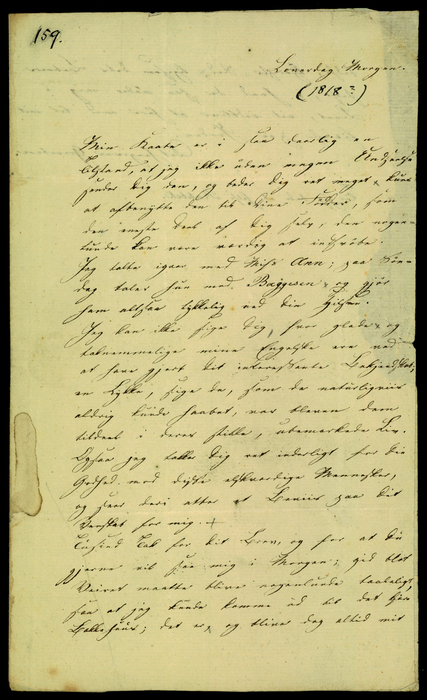 159.
Löverdag Morgen.
(1818?)
Min Kaabe er i saa daarlig en
Tilstand, at jeg ikke uden megen Undseelse
sender dig den, og beder dig ret meget kun
at afbenytte den til dine Födder, som
den eneste Deel af dig selv, den nogen-
lunde kan være værdig at indhylle.
Jeg talte igaar med Miss Ann; paa Sön-
dag taler hun med Baggesen og gjör
ham altsaa lykkelig ved din Hilsen.
Jeg kan ikke sige dig, hvor glade og
taknemmelige mine Engelske ere ved
at have gjort dit interessante Bekjendtskab,
en Lykke, sige de, som de naturligviis
aldrig kunde haabet, var bleven dem
tildeel i deres stille, ubemærkede Liv.
Ogsaa jeg takker dig ret inderligt for din
Godhed mod disse elskværdige Mennesker,
og seer deri atter et Beviis paa dit
Venskab for mig.
Tusind Tak for dit Brev, og for at du
gjerne vil see mig i Morgen; gid blot
Veiret maatte blive nogenlunde taaleligt,
saa at jeg kunde komme ud til det kjære
Bakkehuus; det er og bliver dog altid mit